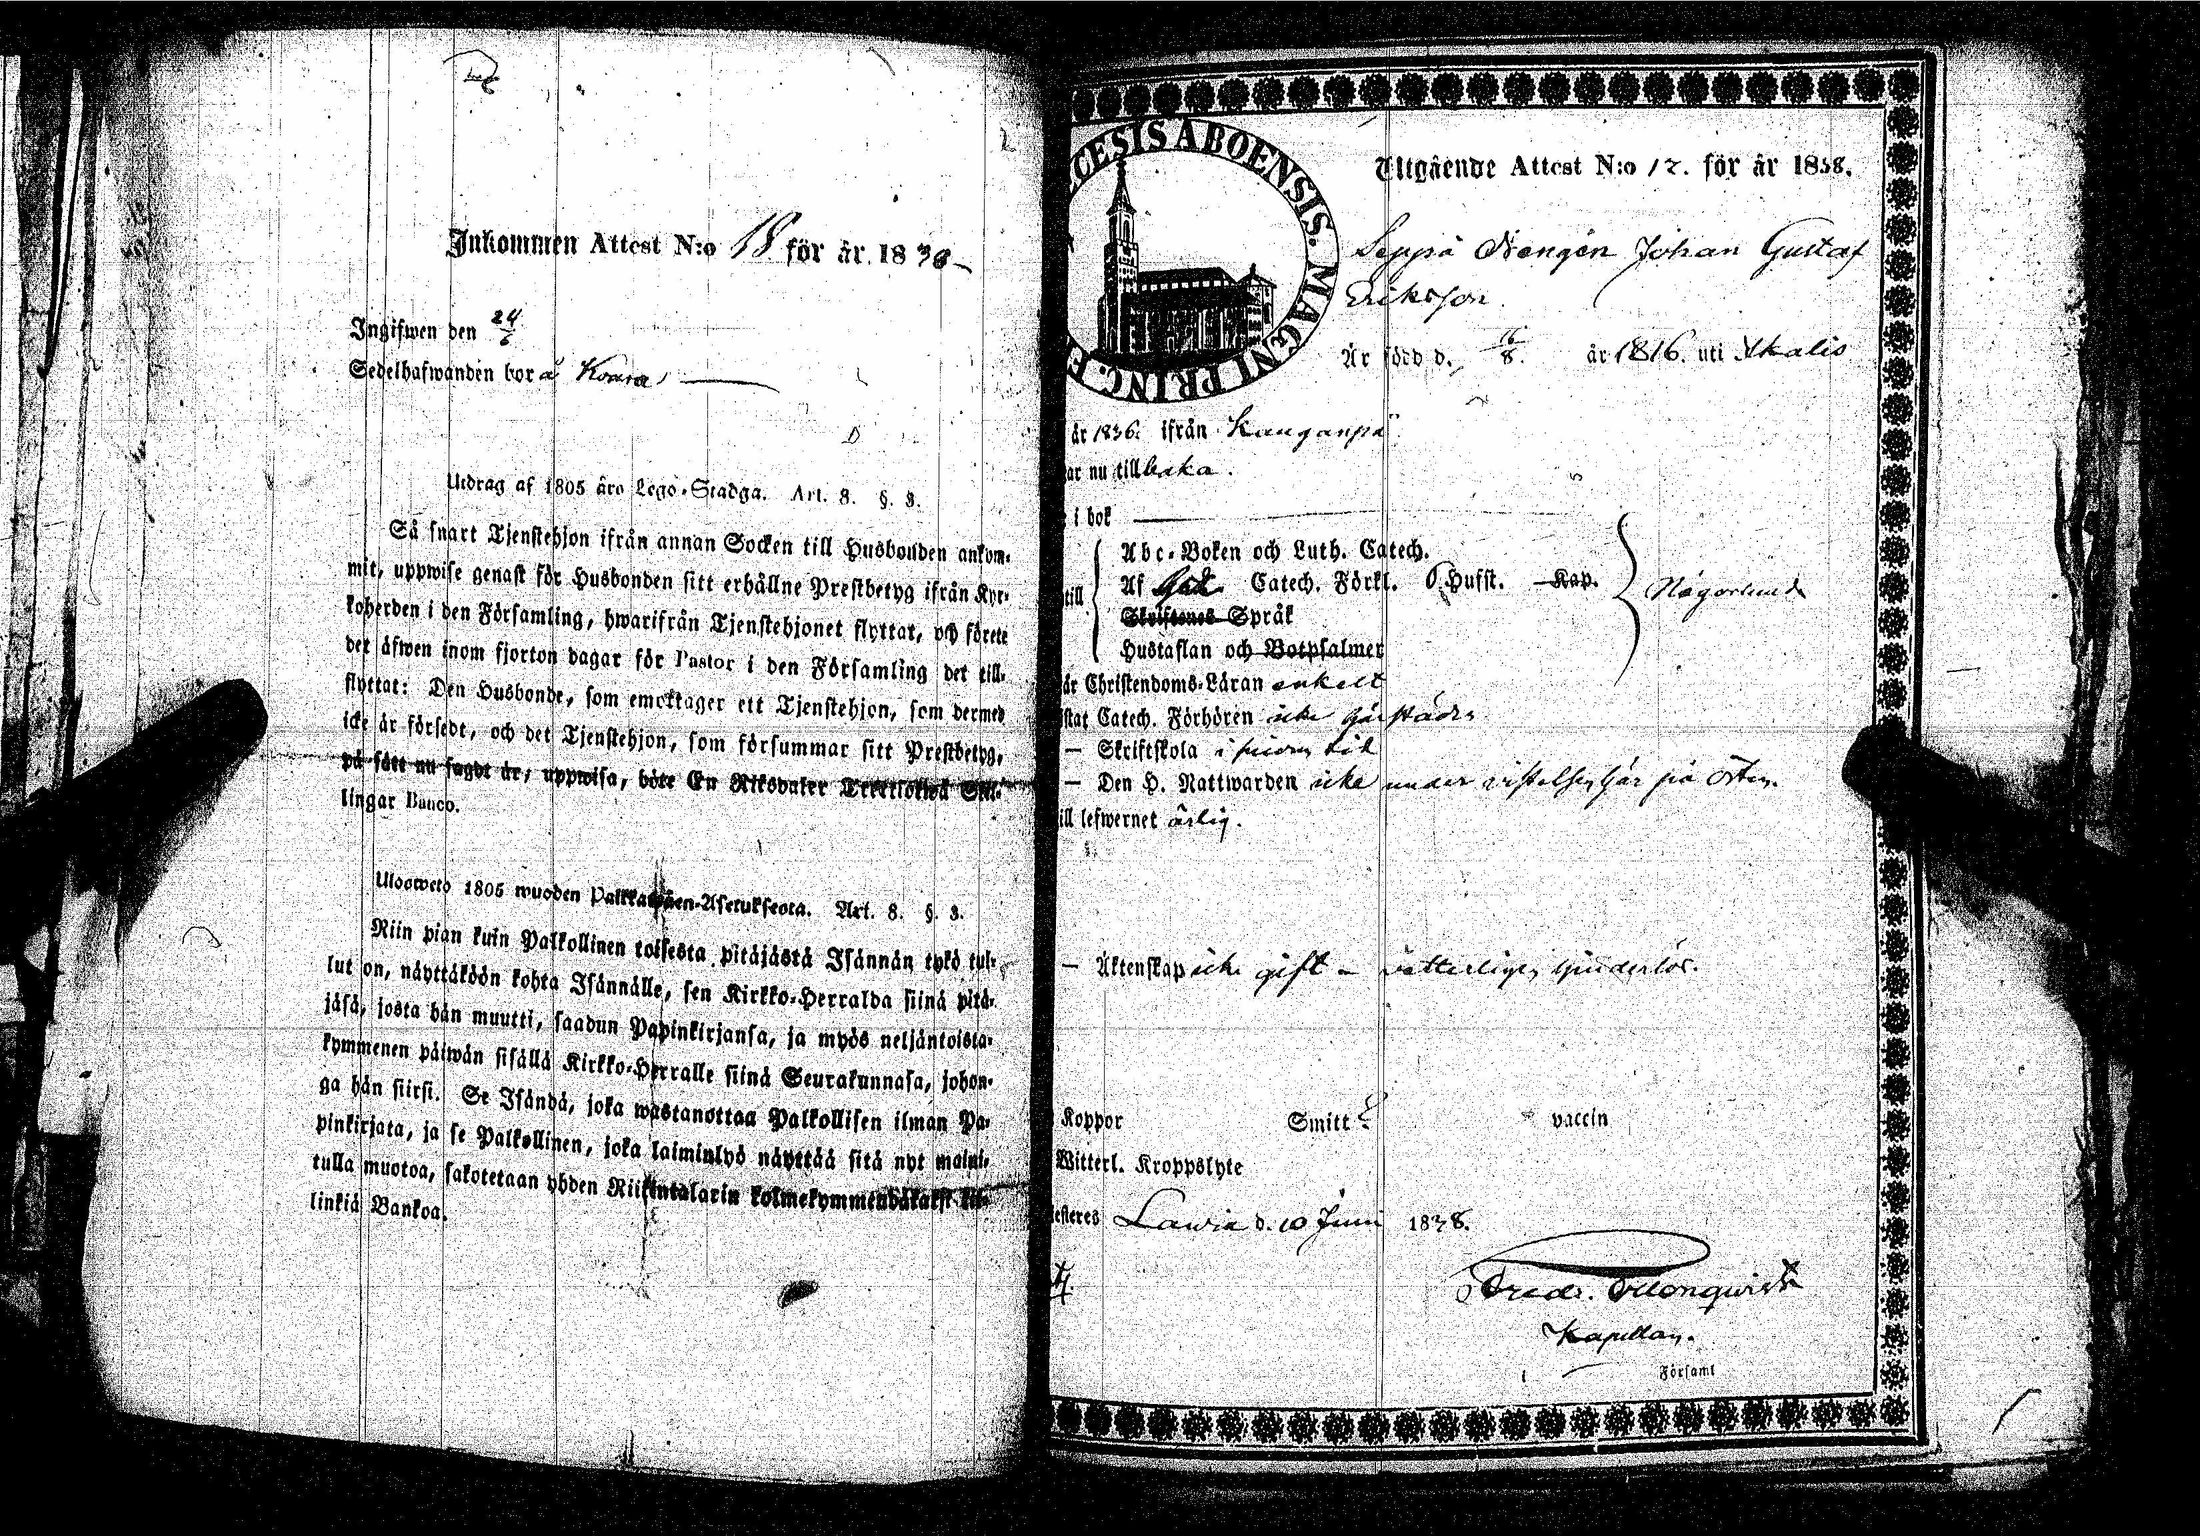 Inkommen Attest N:o 18 för år 1838
Ingifwen den 24/6
Sedelhafwanden bor å
Utdrag af 1805 års Lego-Stadga. Art. 8. §. 3.
Så snart Tjenstehjon ifrån annan Socken till Husbonden ankom-
mit, uppwise genast för Husbonden sitt erhållne Prestbetyg ifrån Kyr-
koherden i den Församling, hwarifrån Tjenstehjonet flyttat, och förete
det äfwen inom fjorton dagar för Pastor i den Församling det till-
flyttat: Den Husbonde, som emottager ett Tjenstehjon, som dermed
icke är försedt, och det Tjenstehjon, som försummar sitt Prestbetyg,
på sätt nu sagdt är, uppwisa, böte En Riksdaler Trettiotwå Skil-
lingar Banco.
Ulosweto 1805 wuoden Palkkawäen-Asetuksesta. Art. 8. §. 3.
Niin pian kuin Palkollinen toisesta pitäjästä Isännän tykö tul-
lut on, näyttäköön kohta Isännälle, sen Kirkko-Herralda siinä pitä-
jäsä, josta hän muutti, saadun Papinkirjansa, ja myös neljäntoista-
kymmenen päiwän sisällä Kirkko-Herralle siinä Seurakunnasa, johon-
ga hän siirsi. Se Isändä, joka wastanottaa Palkollisen ilman Pa-
pinkirjata, ja se Palkollinen, joka laiminlyö näyttää sitä nyt maini-
tulla muotoa, sakotetaan yhden Riikintalarin kolmekymmendäkaksi kil-
linkiä Bankoa.
CESIS ABOENSIS. MAGNI PRINC. F
Utgående Attest N:o 12. för år 1838.
Seppä Johan Gustaf
Eriksson.
Är född d. 6/8. år 1816. uti Ikalis
år 1836. ifrån Kanganpä
ar nu tillbaka.
i bok
Abc-Boken och Luth. Catech.
Af Catech. Förkl. Hufst. Kap.
till
Skriftenes Språk
Någorlunda
Hustaflan och Botpsalmer
är Christendoms-Läran enkelt
stat Catech. Förhören icke härstädes
— Skriftskola i tid
— Den H. Nattwarden icke under vistelsen här på orten.
ill lefwernet ärlig.
— Äktenskap icke gift - vetterligen hinderlös.
Koppor Smitt vaccin
Witterl. Kroppslyte
esteres Lawia d. 10 Juni 1838.
Fredr.
Kapellan.
Församl